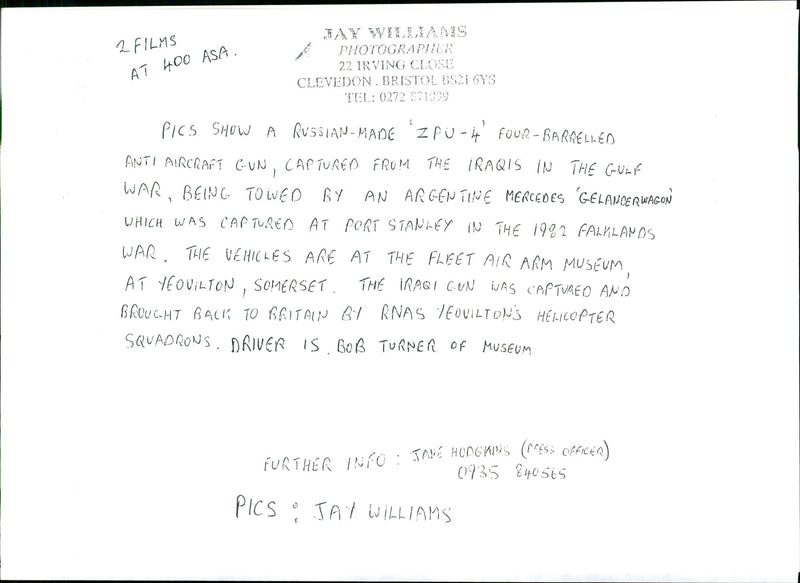 2 FILMS
AT 400 ASA.
JAY WILLIAMS
PHOTOGRAPHER
22 IRVING CLOSE
CLEVEDON. BRISTOL BS21 6YS
TEL: 0272
PICS SHOW A RUSSIAN-MADE 'ZPU-4' FOUR-BARRELLED
ANTI AIRCRAFT GUN, CAPTURED FROM THE IRAQIS IN THE GULF
WAR, BEING TOWED BY AN ARGENTINE MERCEDES 'GELANDERWAGON'
WHICH WAS CAPTURED AT PORT STANLEY IN THE 1982 FALKLANDS
WAR. THE VEHICLES ARE AT THE FLEET AIR ARM MUSEUM,
AT YEOVILTON, SOMERSET. THE IRAQI GUN WAS CAPTURED AND
BROUGHT BACK TO BRITAIN BY RNAS YEOVILTON'S HELICOPTER
SQUADRONS. DRIVER IS BOB TURNER OF MUSEUM
FURTHER INFO: JANE HODGKINS (PRESS OFFICER)
0935 840565
PICS: JAY WILLIAMS